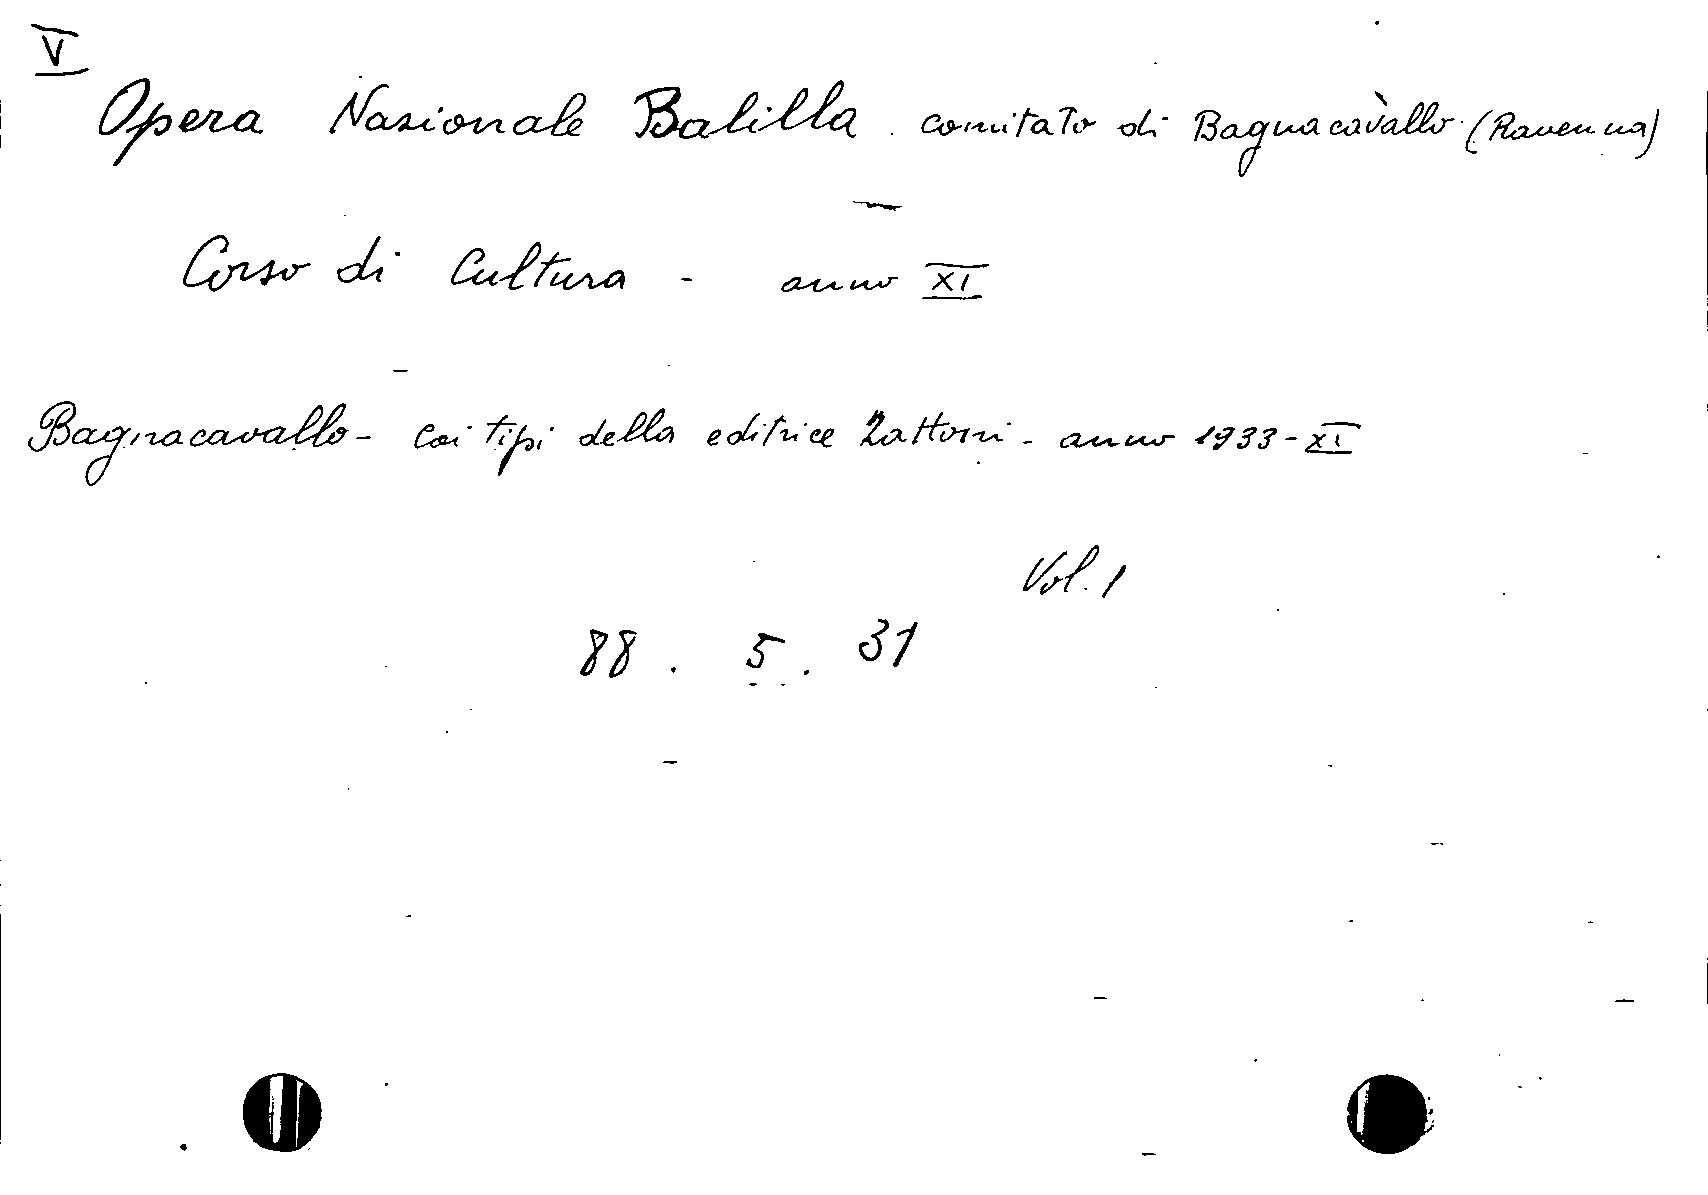 V
Opera Nazionale Balilla. comitato di Bagnacavallo (Ravenna)
Corso di Cultura - anno XI
Bagnacavallo - coi tipi della editrice Zattoni - anno 1933 - XI
Vol. 1
88 . 5 . 31